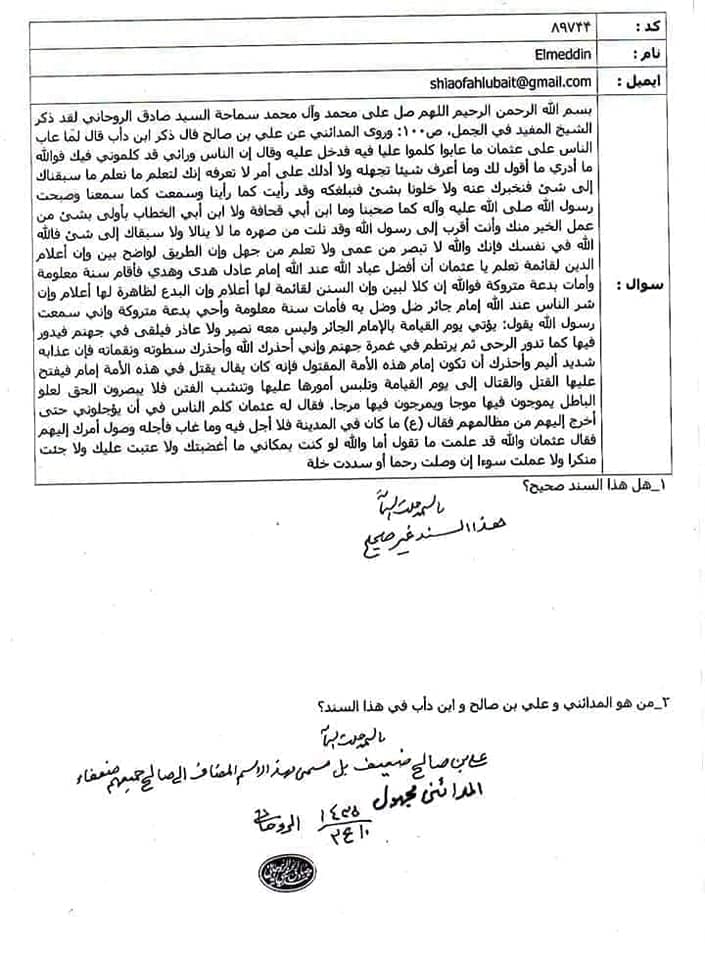 کد : ۸۹۷۴۴
نام : Elmeddin
ایمیل : shiaofahlubait@gmail.com
سوال :
بسم الله الرحمن الرحيم اللهم صل على محمد وآل محمد سماحة السيد صادق الروحاني لقد ذكر
الشيخ المفيد في الجمل، ص۱۰۰: وروى المدائني عن علي بن صالح قال ذكر ابن دأب قال لمّا عاب
الناس على عثمان ما عابوا كلموا عليا فيه فدخل عليه وقال إن الناس ورائي قد كلموني فيك فوالله
ما أدري ما أقول لك وما أعرف شيئا تجهله ولا أدلك على أمر لا تعرفه إنك لتعلم ما نعلم ما سبقناك
إلى شئ فنخبرك عنه ولا خلونا بشئ فنبلغكه وقد رأيت كما رأينا وسمعت كما سمعنا وصحبت
رسول الله صلى الله عليه وآله كما صحبنا وما ابن أبي قحافة ولا ابن أبي الخطاب بأولى بشئ من
عمل الخير منك وأنت أقرب إلى رسول الله وقد نلت من صهره ما لا ينالا ولا سبقاك إلى شئ فالله
الله في نفسك فإنك والله لا تبصر من عمى ولا تعلم من جهل وإن الطريق لواضح بين وإن أعلام
الدين لقائمة تعلم يا عثمان أن أفضل عباد الله عند الله إمام عادل هدى وهدي فأقام سنة معلومة
وأمات بدعة متروكة فوالله إن كلا لبين وإن السنن لقائمة لها أعلام وإن البدع لظاهرة لها أعلام وإن
شر الناس عند الله إمام جائر ضل وضل به فأمات سنة معلومة وأحي بدعة متروكة وإني سمعت
رسول الله يقول: يؤتي يوم القيامة بالإمام الجائر وليس معه نصير ولا عاذر فيلقى في جهنم فيدور
فيها كما تدور الرحى ثم يرتطم في غمرة جهنم وإني أحذرك الله وأحذرك سطوته ونقماته فإن عذابه
شديد أليم وأحذرك أن تكون إمام هذه الأمة المقتول فإنه كان يقال يقتل في هذه الأمة إمام فيفتح
عليها القتل والقتال إلى يوم القيامة وتلبس أمورها عليها وتنشب الفتن فلا يبصرون الحق لعلو
الباطل يموجون فيها موجا ويمرجون فيها مرجا. فقال له عثمان كلم الناس في أن يؤجلوني حتى
أخرج إليهم من مظالمهم فقال (ع) ما كان في المدينة فلا أجل فيه وما غاب فأجله وصول أمرك إليهم
فقال عثمان والله قد علمت ما تقول أما والله لو كنت بمكاني ما أغضبتك ولا عتبت عليك ولا جئت
منكرا ولا عملت سوءا إن وصلت رحما أو سددت خلة
۱_هل هذا السند صحيح؟
باسمه جلت اسمائه
هذا السند غير صحيح
۲_من هو المدائني و علي بن صالح و ابن دأب في هذا السند؟
باسمه جلت اسمائه
علي بن صالح ضعيف بل مسمى بهذا الاسم المضاف الى صالح جميعهم ضعفاء
المدائني مجهول
الروحاني